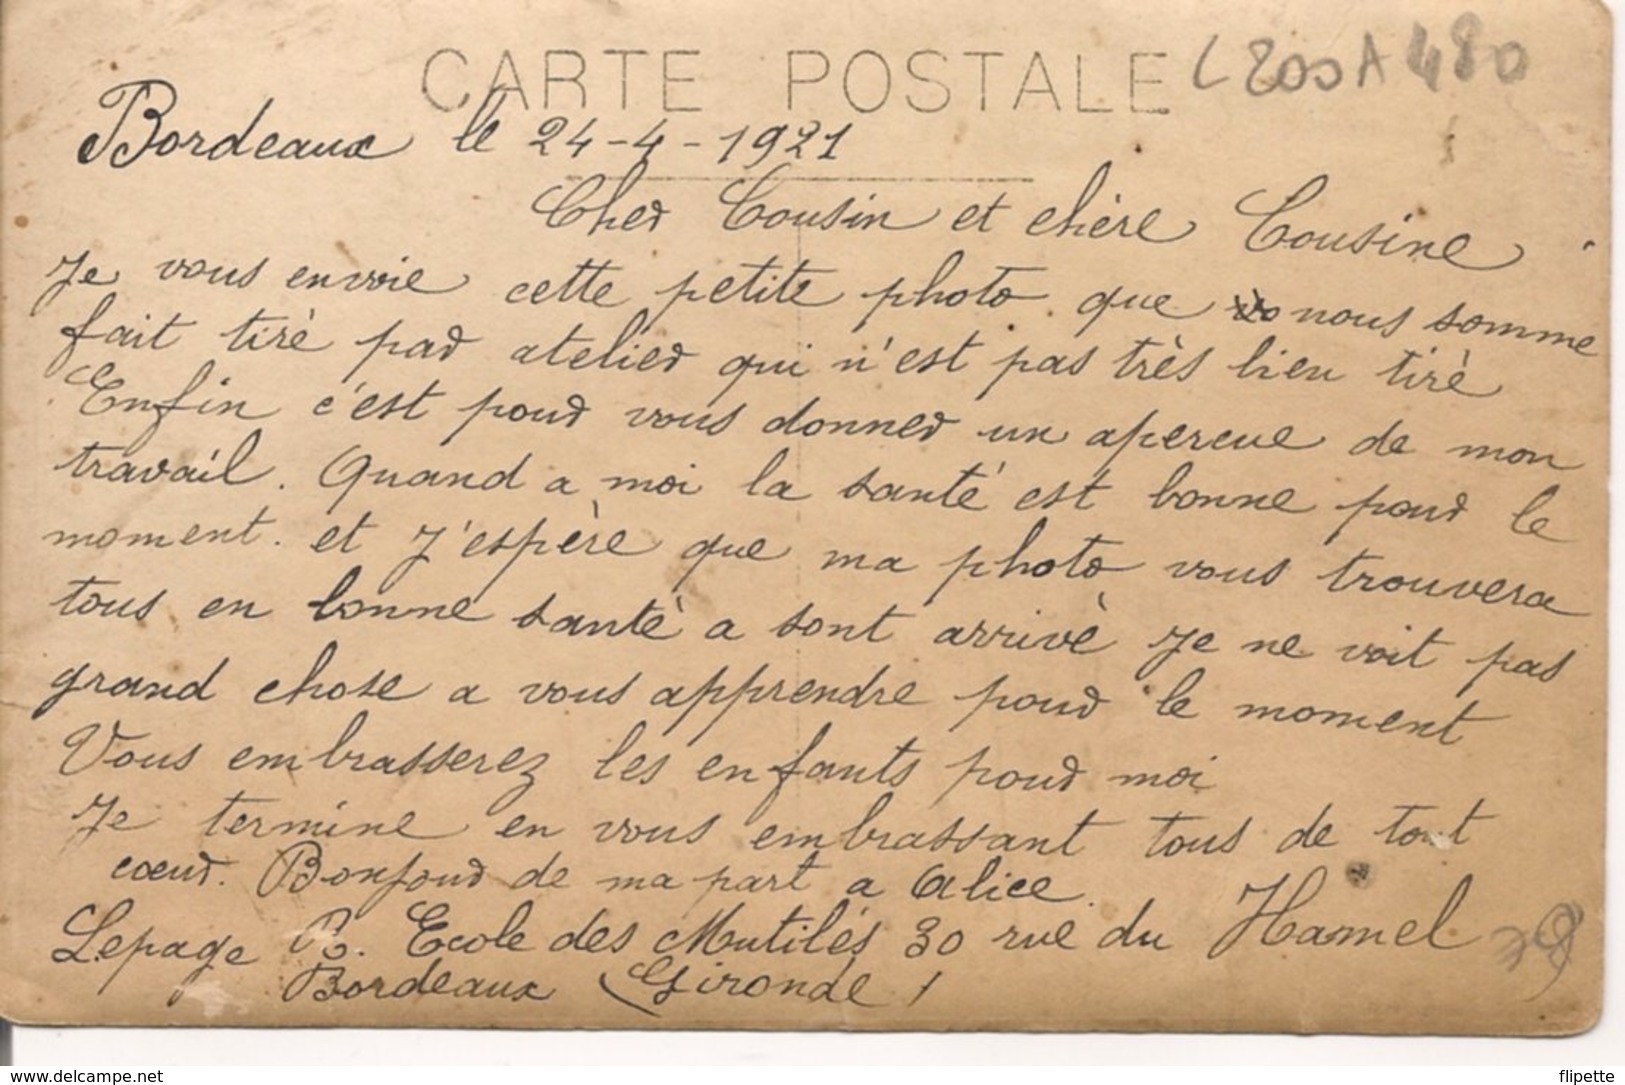 CARTE POSTALE
L200A 480
Bordeaux le 24-4-1921
Cher Cousin et chère Cousine
Je vous envoie cette petite photo que nous somme
fait tiré par atelier qui n'est pas très bien tiré
Enfin c'est pour vous donner un apercue de mon
travail. Quand a moi la santé est bonne pour le
moment. et j'espère que ma photo vous trouvera
tous en bonne santé a sont arrivé je ne voit pas
grand chose a vous apprendre pour le moment
Vous embrasserez les enfants pour moi
Je termine en vous embrassant tous de tout
coeur. Bonjour de ma part a Alice.
Lepage R. Ecole des Mutilés 30 rue du Hamel
Bordeaux (Gironde)
www.delcampe.net
flipette